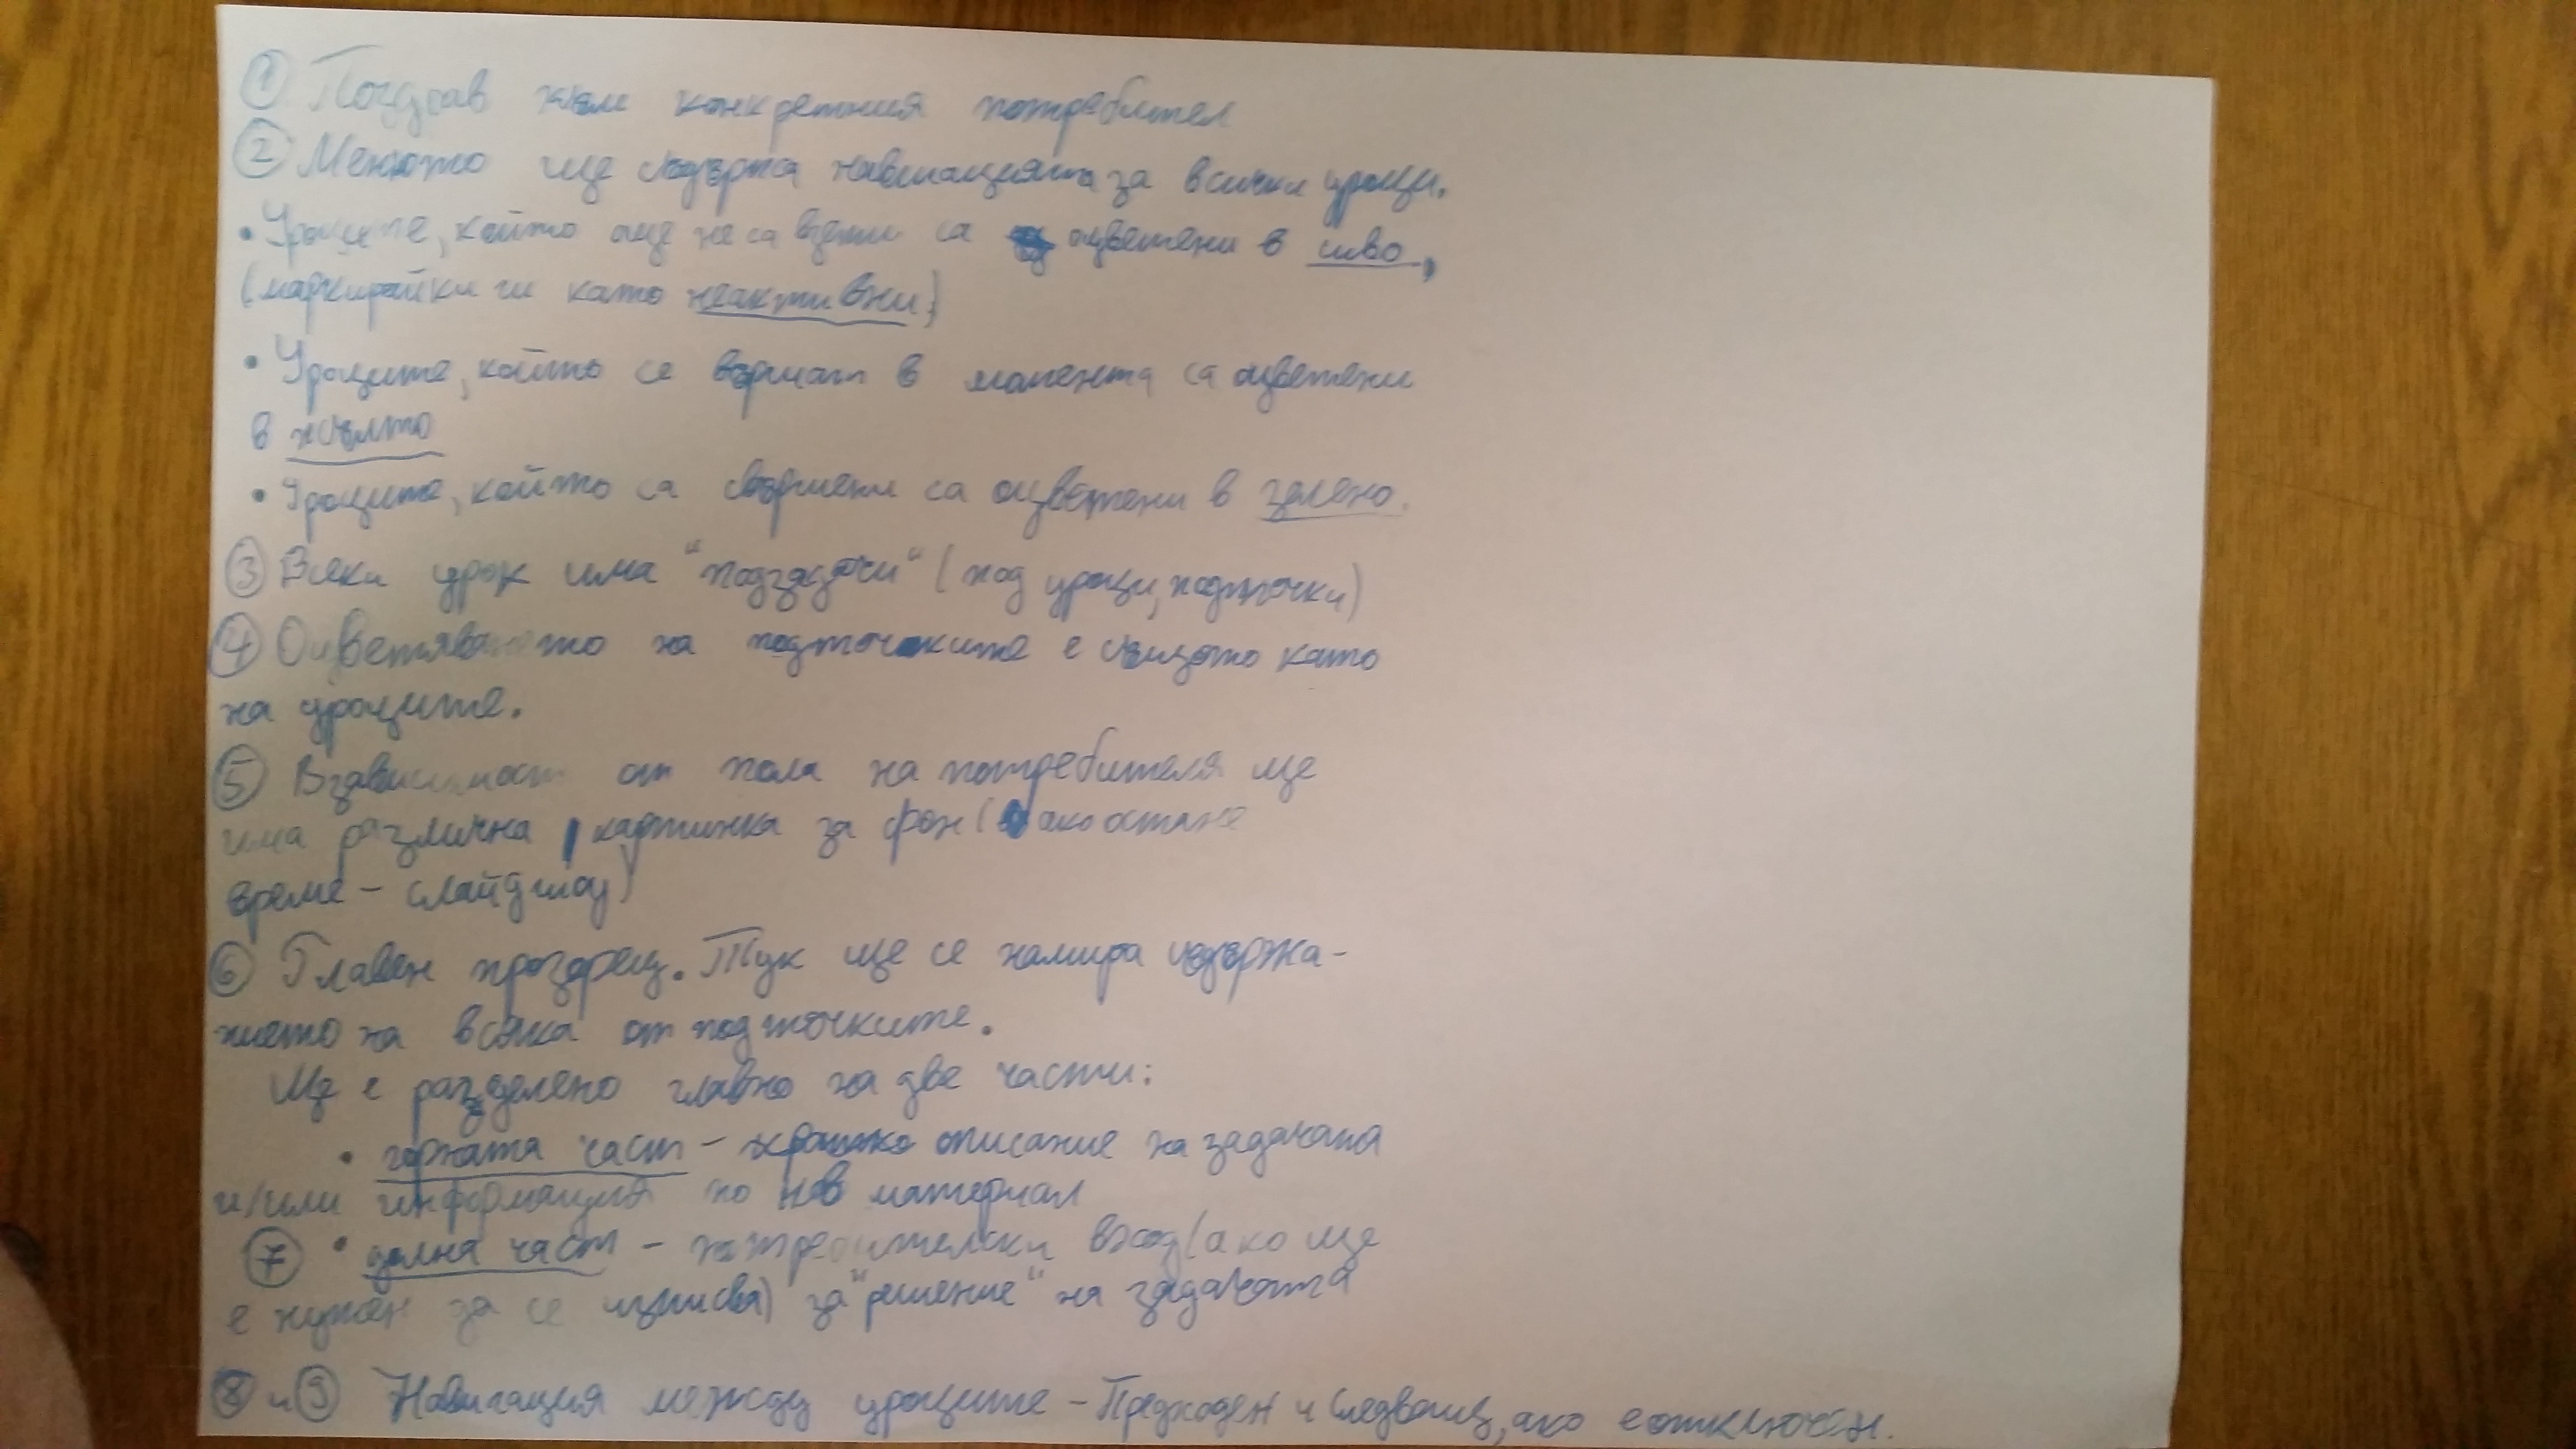 ① Поздрав към конкретния потребител
② Менюто ще съдържа навигацията за всички уроци.
• Уроците, който още не са взети са оцветени в сиво,
(маркирайки ги като неактивни)
• Уроците, който се вършат в момента са оцветени
в жълто
• Уроците, който са свършени са оцветени в зелено.
③ Всеки урок има "подзадачи" (под уроци, подточки)
④ Оцветяването на подточките е същото като
на уроците.
⑤ В зависимост от пола на потребителя ще
има различна картинка за фон (ако остане
време - слайдшоу)
⑥ Главен прозорец. Тук ще се намира съдържа-
нието на всяка от подточките.
Ще е разделено главно на две части:
• горната част - кратко описание на задачата
и/или информация по нов материал
⑦ • долна част - потребителски вход (ако ще
е нужен за се изписва) за "решение" на задачата
⑧ и ⑨ Навигация между уроците - Предходен и Следващ, ако е отключен.